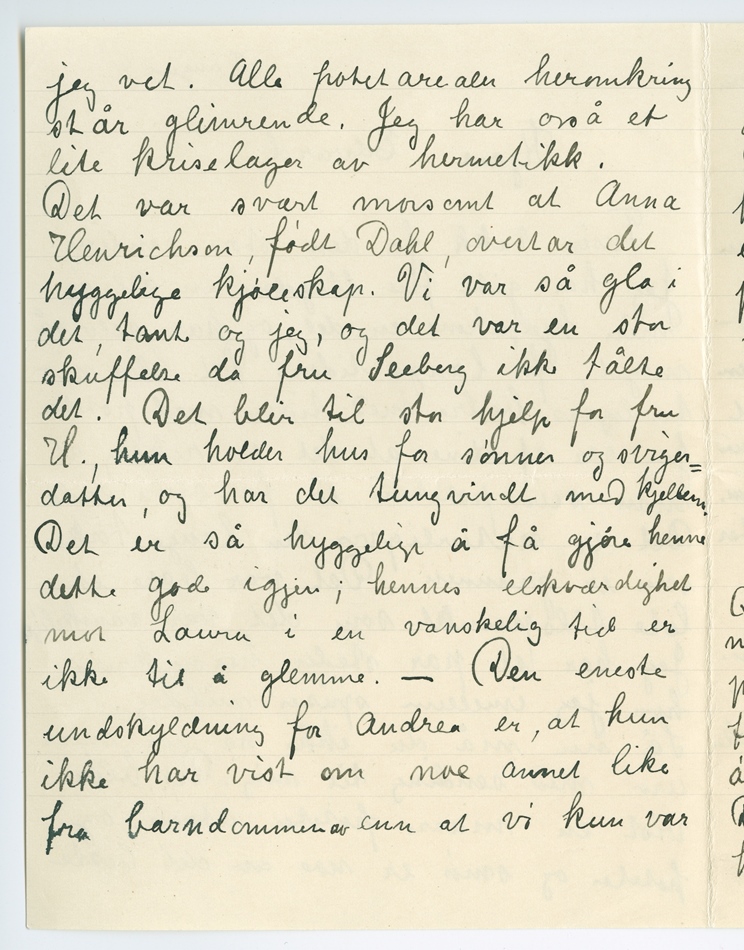 jeg vet. Alle potetarealer heromkring
står glimrende. Jeg har også et
lite kriselager av hermetikk.
Det var svært morsomt at Anna
Henrichson, født Dahl, overtar det
hyggelige kjøleskap. Vi var så gla i
det, tante og jeg, og det var en stor
skuffelse da fru Seeberg ikke tålte
det. Det blir til stor hjelp for fru
H., hun holder hus for sønner og sviger=
datter, og har det tungvindt med kjellern.
Det er så hyggelig å få gjøre henne
dette gode igjen; hennes elskværdighet
mot Laura i en vanskelig tid er
ikke til å glemme. — Den eneste
undskyldning for Andrea er, at hun
ikke har vist om noe annet like
fra barndommen av enn at vi kun var